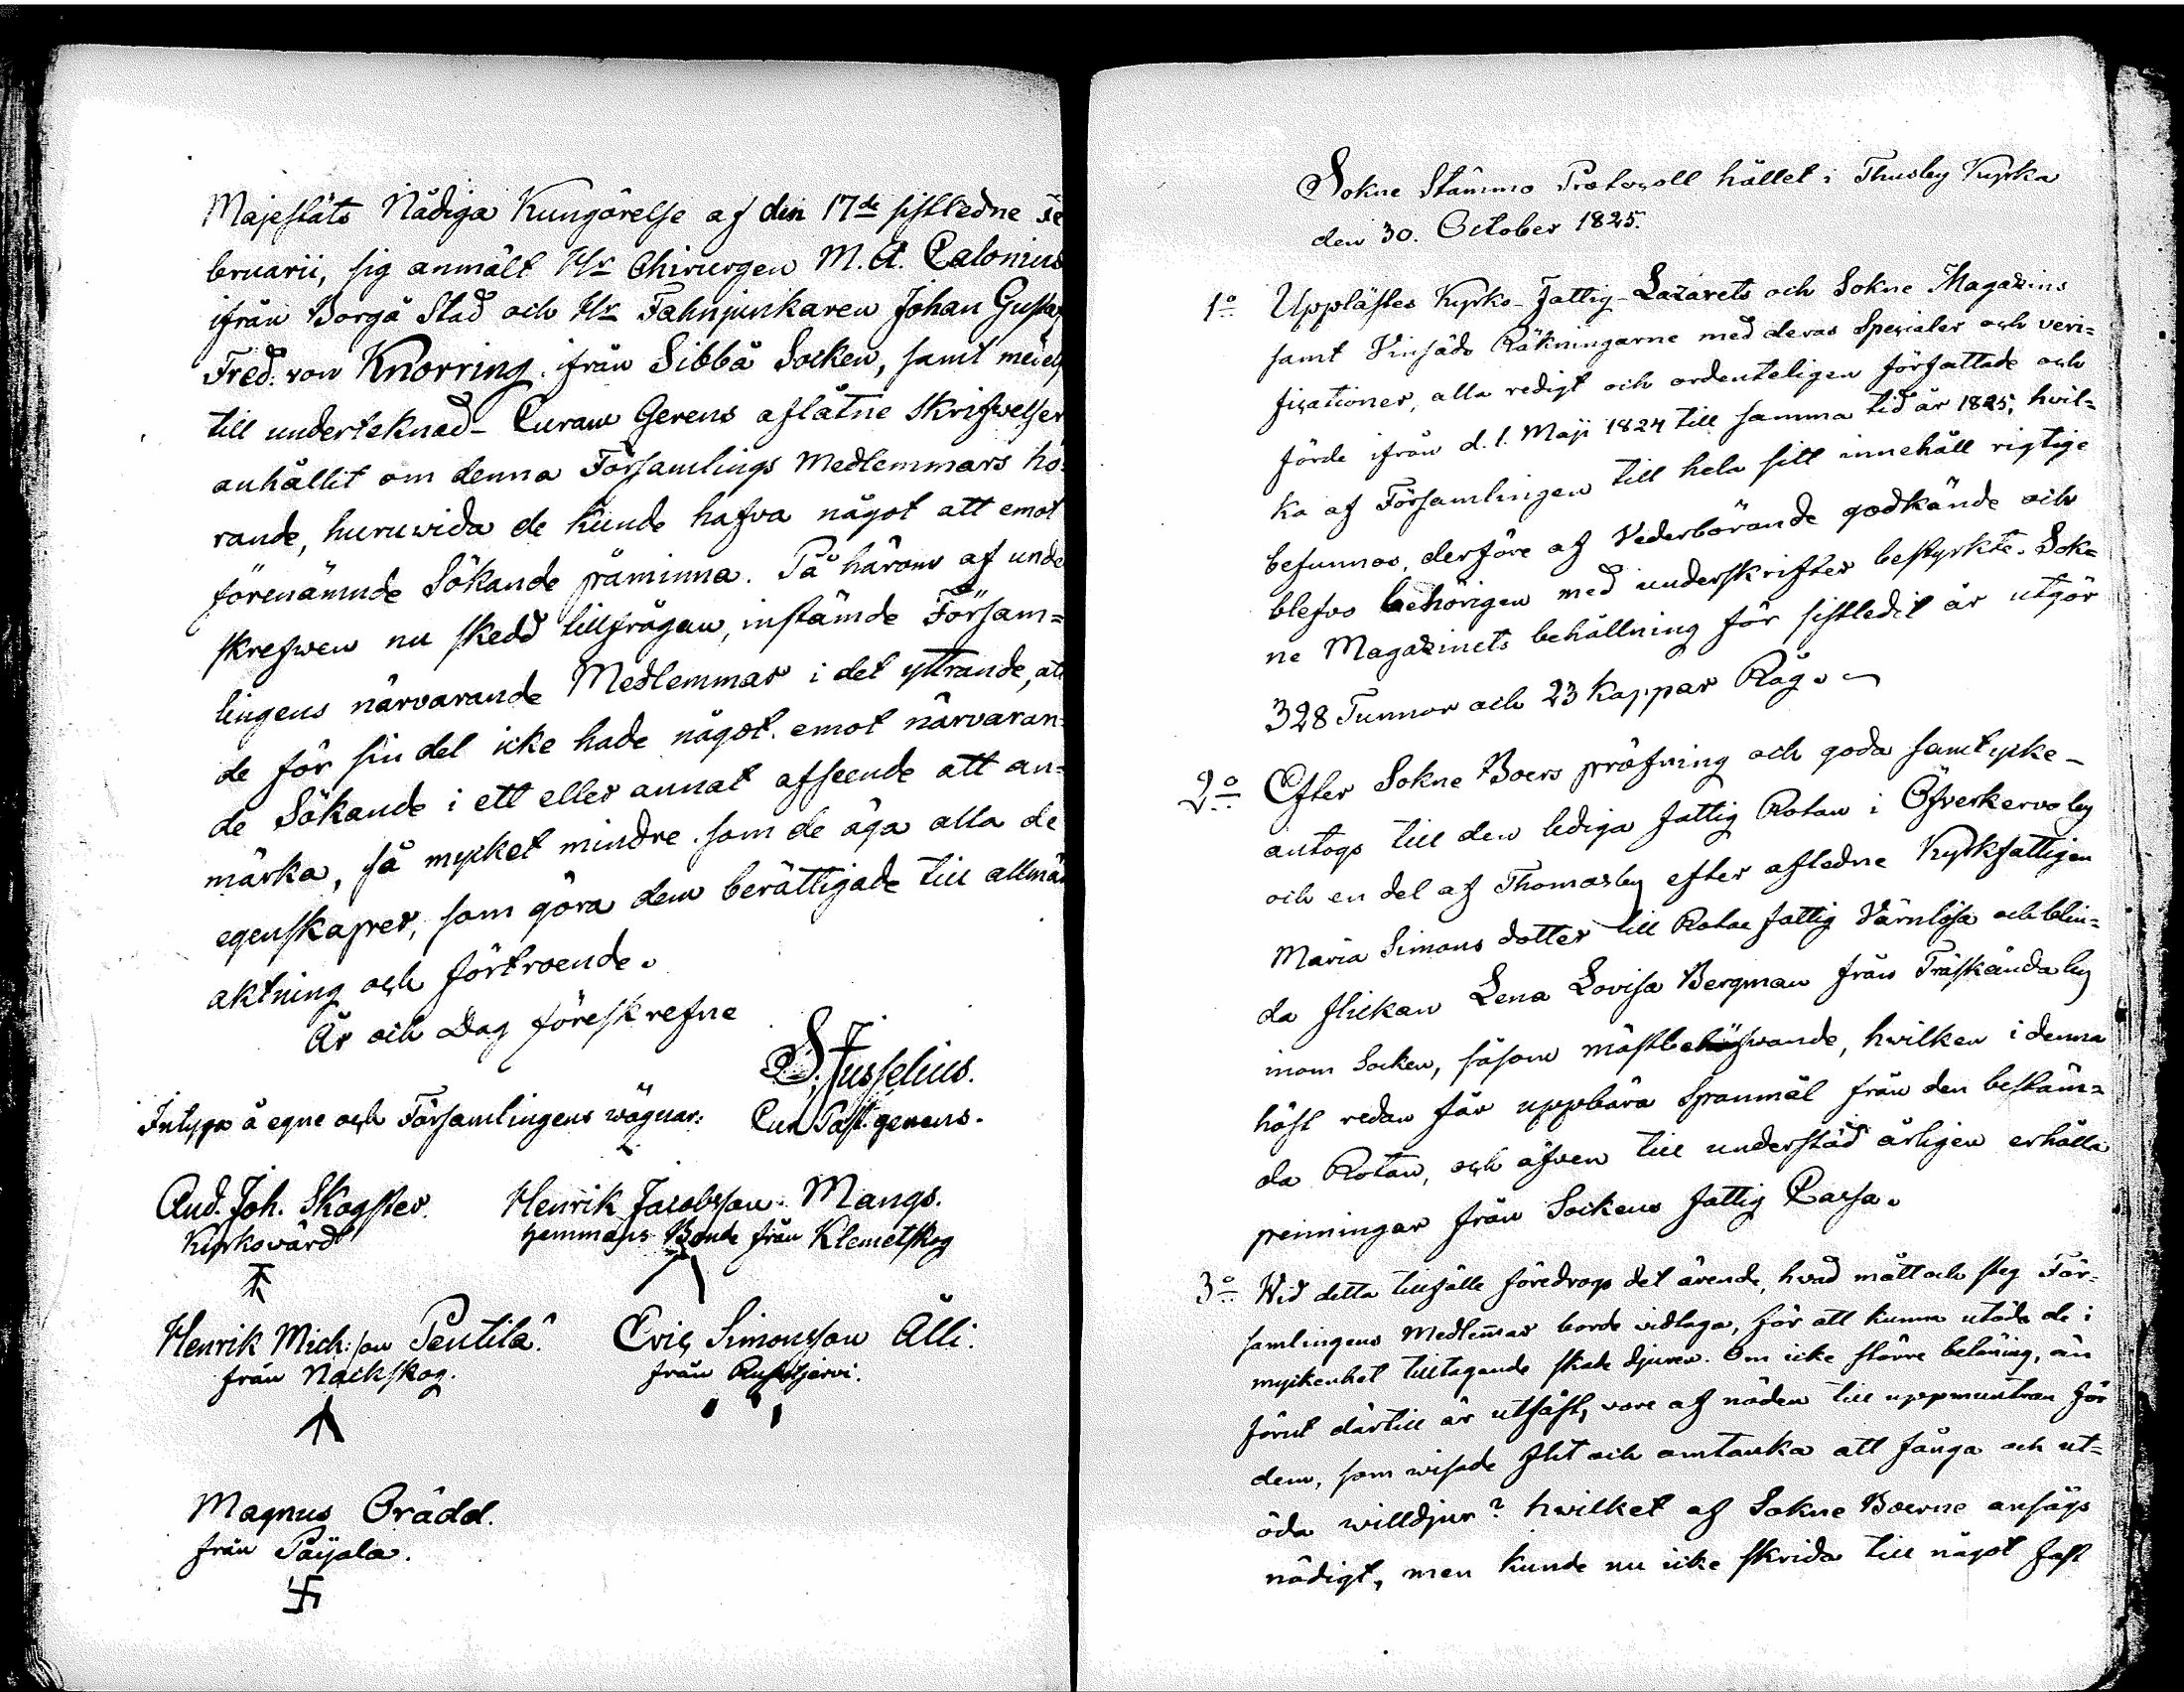 Majestäts Nådiga Kungörelse af den 17de sistledne Fe
bruarii, sig anmält Hr Chirurgen M. A. Calonius
ifrån Borgå Stad och Hr Fahnjunkaren Johan Gustaf
Fred: von Knorring ifrån Sibbå Socken, samt medelst
till underteknad Curam Gerens aflåtne Skrifwelser
anhållit om denna Församlings Medlemmars hö-
rande, huruwida de kunde hafva något att emot
förenämnde Sökande påminna. På härom af unde
skrefwen nu skedd tillfrågan, instämde Försam=
lingens närvarande Medlemmar i det yttrande, att
de för sin del icke hade något emot närvaran=
de Sökande i ett eller annat afseende att an=
märka, så mycket mindre som de äga alla de
egenskaper, som göra dem berättigade till allmän
aktning och förtroende.
År och Dag föreskrefne
Jusselius.
Cur Past. gerens.
Intyga å egne och Församlingens wägnar:
And. Joh. Skogster.
Kyrkovärd
Henrik Jacobsson Mangs.
Hemmans Bonde från Klemetskog
Henrik Mich:son Pentilä
från Nackskog.
Eric Simonsson Älli.
från Rusutjervi.
Magnus Orädd.
från Paijala.
Sokne Stämmo Protocoll hållet i Thusby Kyrka
den 30. October 1825.
1o Upplästes Kyrko- Fattig- Lazarets och Sokne Magazins
samt Vinsäds Räkningarne med deras Specialer och veri=
ficationer, alla redigt och ordenteligen författade och
förde ifrån d. 1. Maji 1824 till samma tid år 1825, hvil=
ka af Församlingen till hela sitt innehåll rigtige
befunnos, derföre af Vederbörande godkände och
blefvo behörigen med underskrifter bestyrkte. Sok=
ne Magazinets behållning för sistledit år utgör
328 Tunnor och 23 kappar Råg.
2o Efter Sokne Boers pröfning och goda samtycke
antogs till den lediga fattig Rotan i Öfverkervo by
och en del af Thomasby efter afledne Kyrkfattigen
Maria Simons dotter till Rotae fattig Värnlösa och blin=
da flickan Lena Lovisa Bergman från Träskända by
inom Socken, såsom mästbehöfwande, hvilken i denna
höst redan får uppbära Spannmål från den bestäm=
da Rotan, och äfven till understöd årligen erhålla
penningar från Sockens Fattig Cassa.
3o Wid detta tillfälle föredrogs det ärende, hvad mått och steg För=
samlingens Medlemmar borde vidtaga, för att kunna utöda de i
myckenhet tilltagande skade djuren. Om icke större belöning, än
förut därtill är utfäst, vore af nöden till uppmuntran för
dem, som wisade flit och omtanka att fånga och ut=
öda willdjur? hwilket af Sokne Boerne ansågs
nödigt, men kunde nu icke skrida till något fast